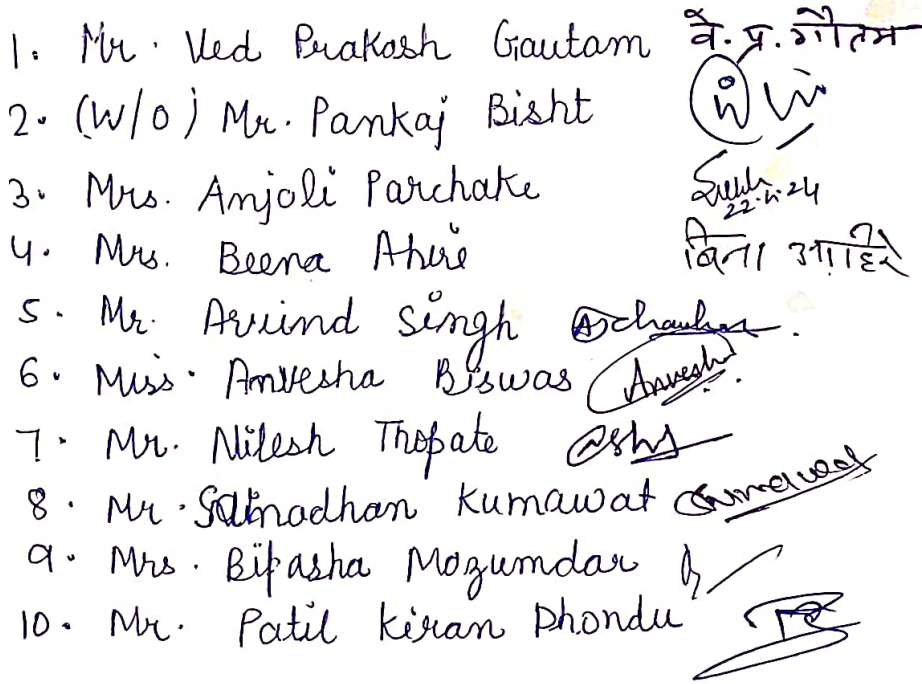 1. Mr. Ved Prakash Gautam वे. प्र. गौतम
2. (W/O) Mr. Pankaj Bisht
3. Mrs. Anjoli Parchake 22.11.24
4. Mrs. Beena Ahire बिना आहिरे
5. Mr. Arvind Singh
6. Miss. Anvesha Biswas Anvesha
7. Mr. Nilesh Thopate
8. Mr. Samadhan Kumawat Kumawat
9. Mrs. Bipasha Mozumdar
10. Mr. Patil Kiran Dhondu